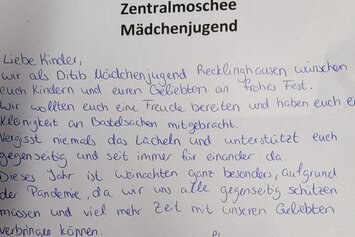 Zentralmoschee
Mädchenjugend
Liebe Kinder,
wir als Ditib Mädchenjugend Recklinghausen wünschen
euch Kindern und euren Geliebten ein frohes Fest.
Wir wollten euch eine Freude bereiten und haben euch
Kleinigkeit an Bastelsachen mitgebracht.
Vergisst niemals das Lächeln und unterstützt euch
gegenseitig und seit immer für einander da.
Dieses Jahr ist Weinachten ganz besonders, aufgrund
der Pandemie, da wir uns alle gegenseitig schützen
müssen und viel mehr Zeit mit unseren Geliebten
verbringen können.